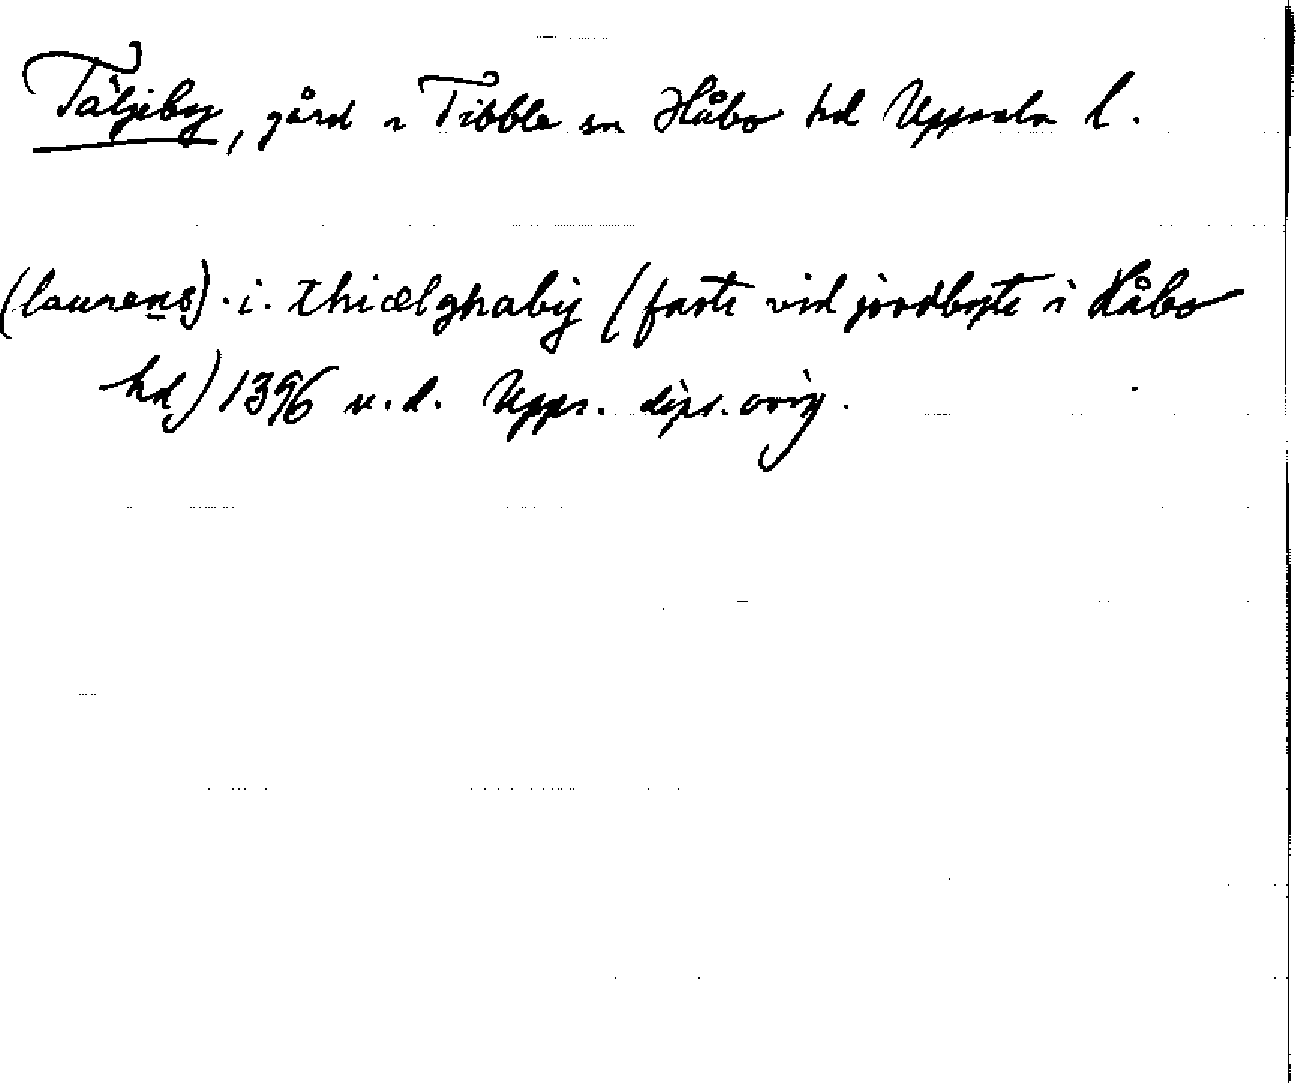 Täljeby, gård i Tibble sn Håbo hd Uppsala l.
(laurens). i. thiælghabij (faste vid jordbyte i Håbo
hd) 1396 u.d. Upps. dipl. orig.